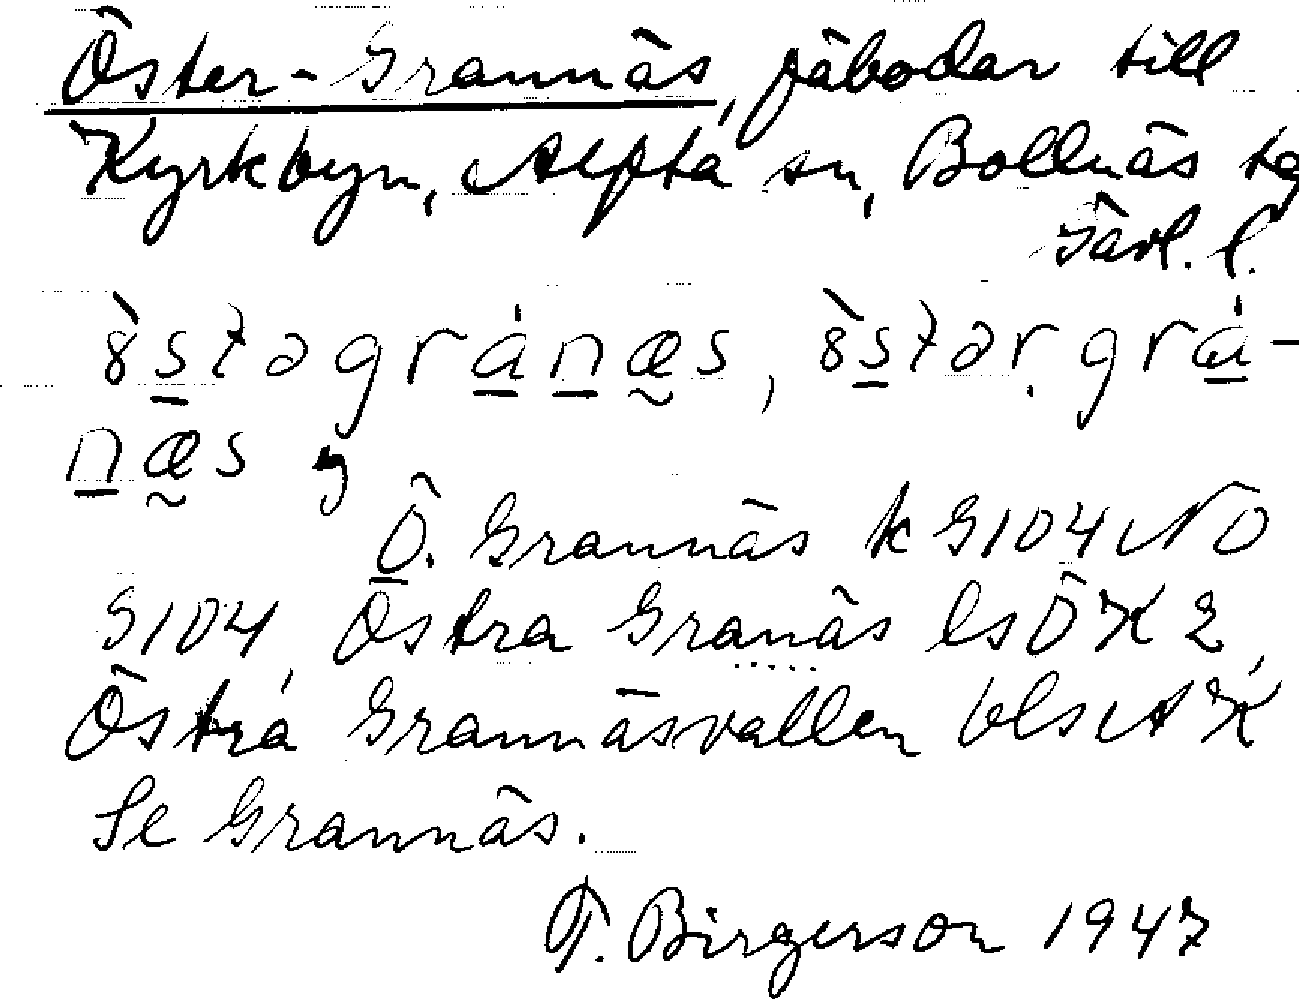 Öster-Grannäs, fäbodar till
Kyrkbyn, Alfta sn, Bollnäs tg
Gävl. l.
ö̀stəgránæs, ö̀stərgrá-
næs
Ö. Grannäs k G104 NO
G104, Östra Granäs lsÖK 2,
Östra Grannäsvallen blsAK
Se Grannäs.
Birgerson 1947